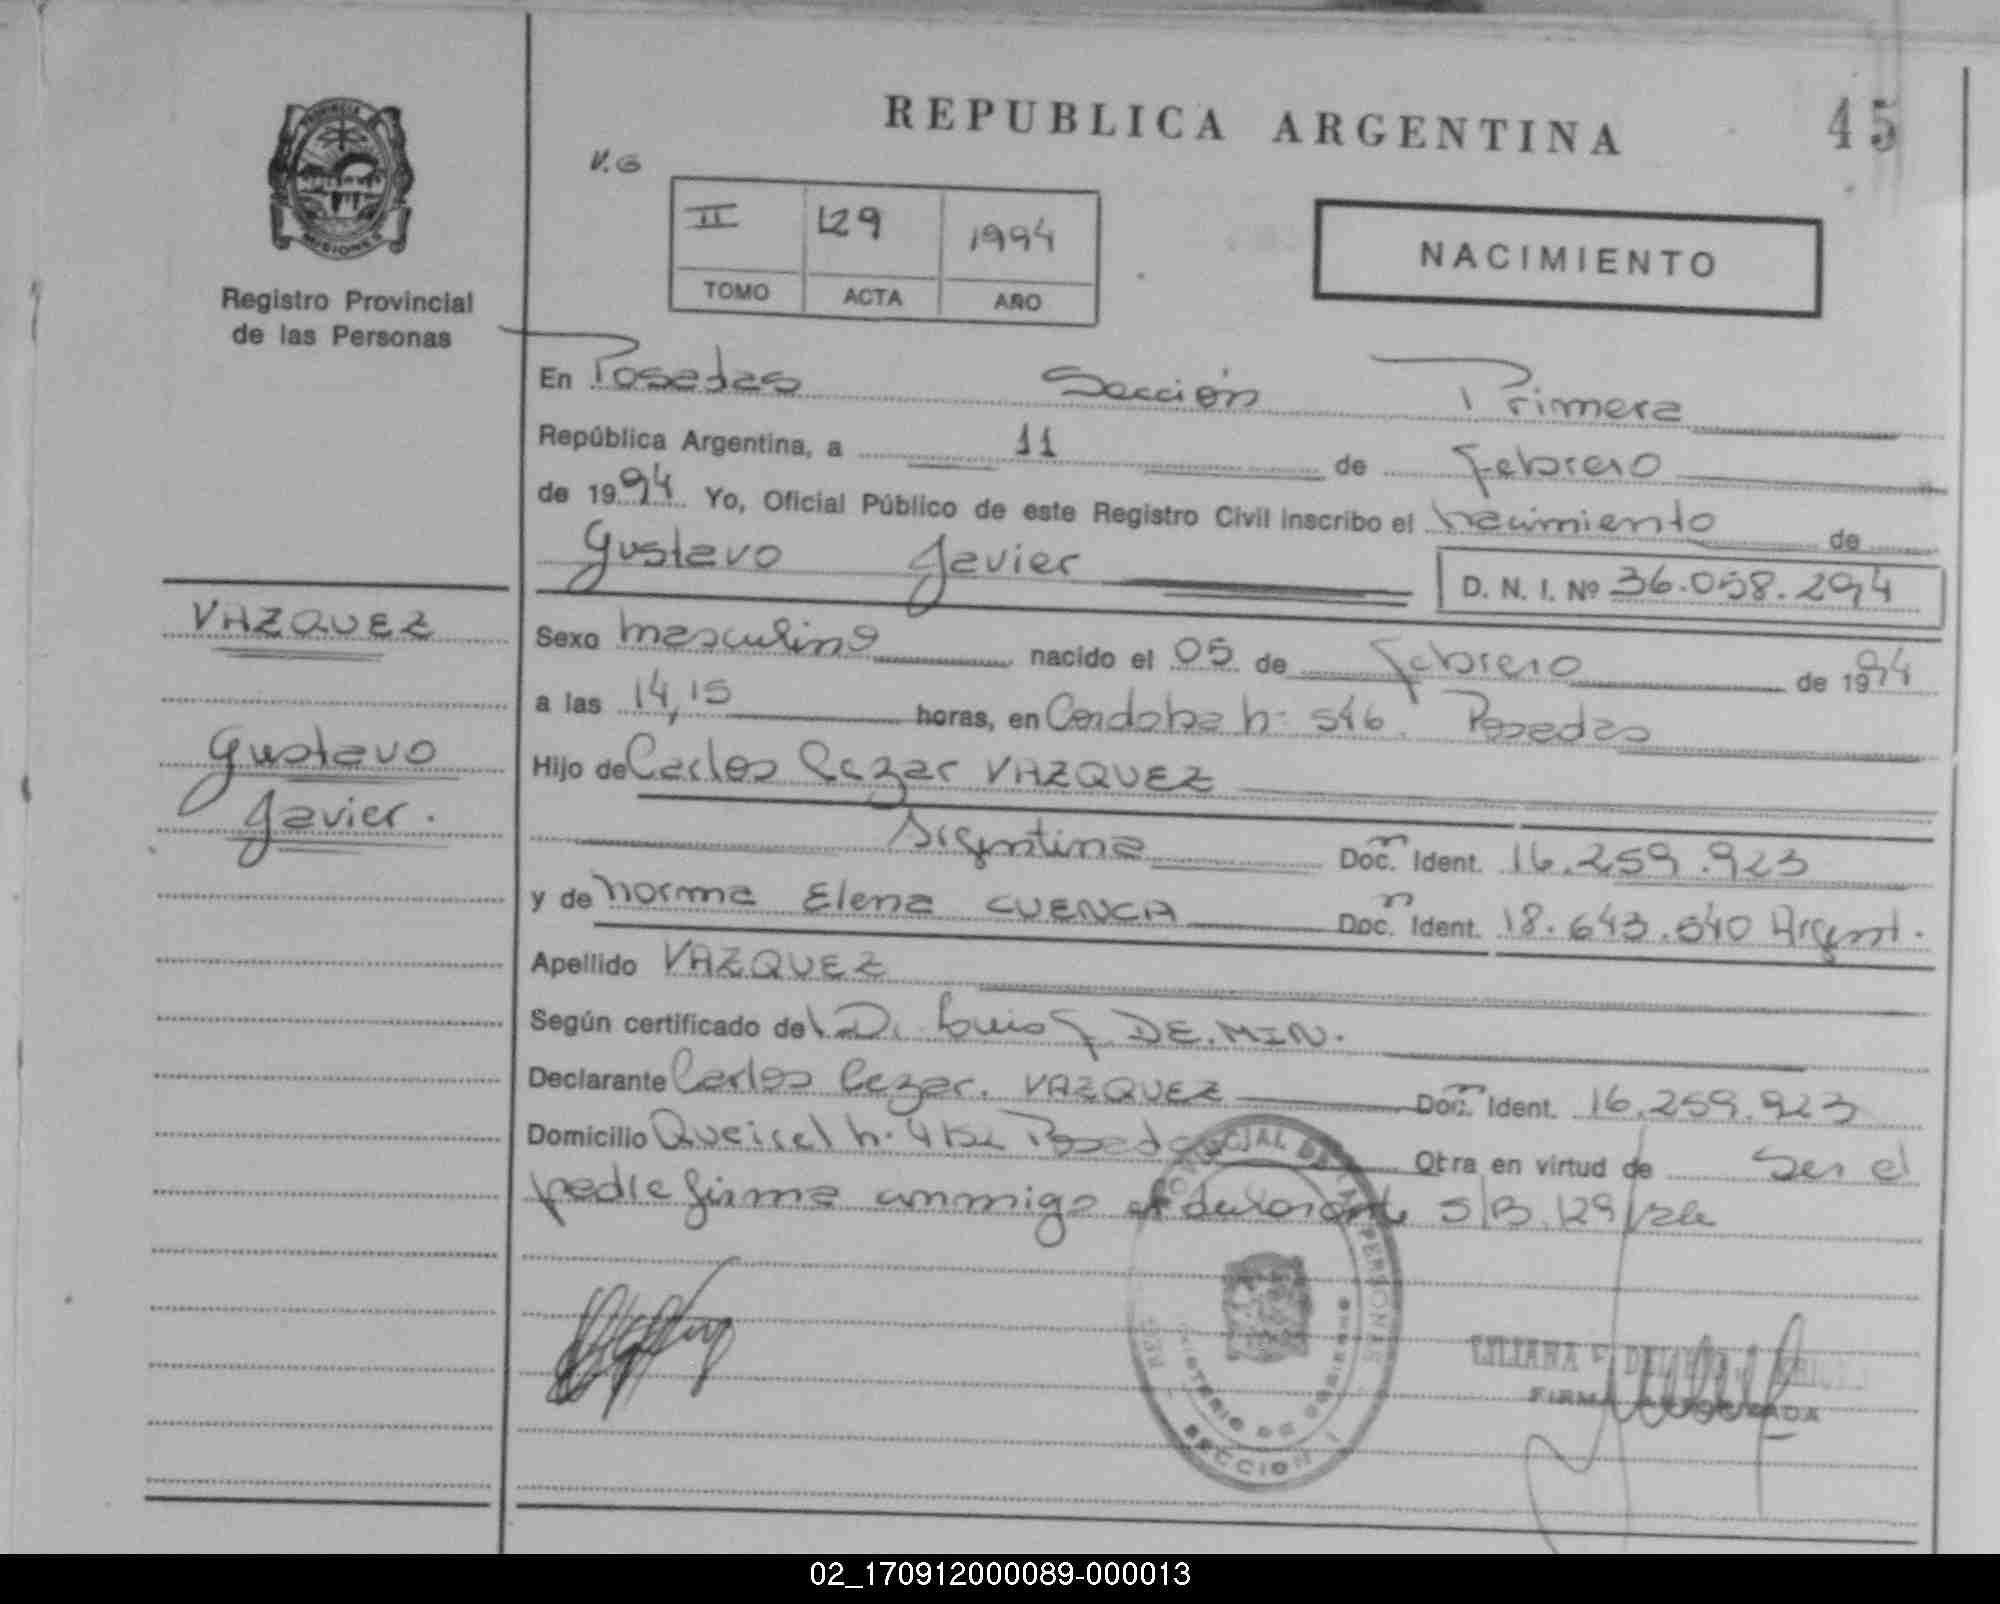 REPUBLICA ARGENTINA
45
V.G
II 129 1994
TOMO ACTA AÑO
NACIMIENTO
PROVINCIA
MISIONES
Registro Provincial
de las Personas
En Posadas Sección Primera
República Argentina, a 11 de Febrero
de 1994 Yo, Oficial Público de este Registro Civil inscribo el nacimiento de
Gustavo Javier D. N. I. Nº 36.058.294
VAZQUEZ
Gustavo
Javier.
Sexo masculino nacido el 05 de Febrero de 1994
a las 14,15 horas, en Cordoba n: 546. Posadas
Hijo de Carlos Cezar VAZQUEZ
Argentina Doc. Ident. 16.259.923
y de Norma Elena CUENCA Doc. Ident. 18.643.540 Argent.
Apellido VAZQUEZ
Según certificado de Dr. Luis DE.MIN.
Declarante Carlos Cezar. VAZQUEZ Doc. Ident. 16.259.923
Domicilio Posadas Otra en virtud de Ser el
padre firma conmigo el declarante S/B. 129
PERSONAS
MINISTERIO DE GOBIERNO
SECCION I
LILIANA
FIRMA AUTORIZADA
02_170912000089-000013